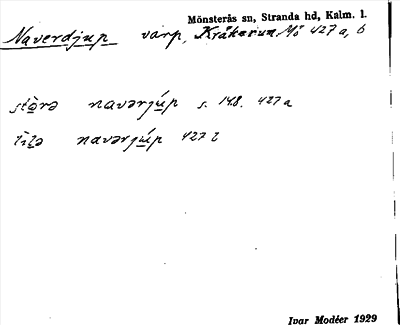 Mönsterås sn, Stranda hd, Kalm. l.
Naverdjup varp, Kråkerum, Mö 427 a, b
stòrə navərjúp s. 148. 427 a
lìlə navərjúp 427 b
Ivar Modéer 1929